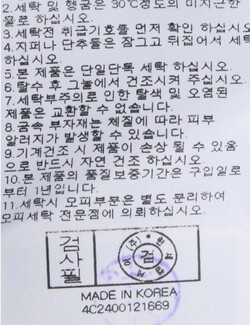 2.세탁 및 헹굼은 30℃정도의 미지근한
물로 하십시오.
3.세탁전 취급기호를 먼저 확인 하십시오
4.지퍼나 단추등은 잠그고 뒤집어서 세탁
하십시오.
5.본 제품은 단일단독 세탁 하십시오.
6.탈수 후 그늘에서 건조시켜 주십시오.
7.세탁부주의로 인한 탈색 및 오염된
제품은 교환할 수 없습니다.
8.금속 부자재는 체질에 따라 피부
알러지가 발생할 수 있습니다.
9.기계건조 시 제품이 손상 될 수 있음
으로 반드시 자연 건조 하십시오.
10.본 제품의 품질보증기간은 구입일로
부터 1년입니다.
11.세탁시 모피부분은 별도 분리하여
모피세탁 전문점에 의뢰하십시오.
검
사
필
검
MADE IN KOREA
4C2400121669